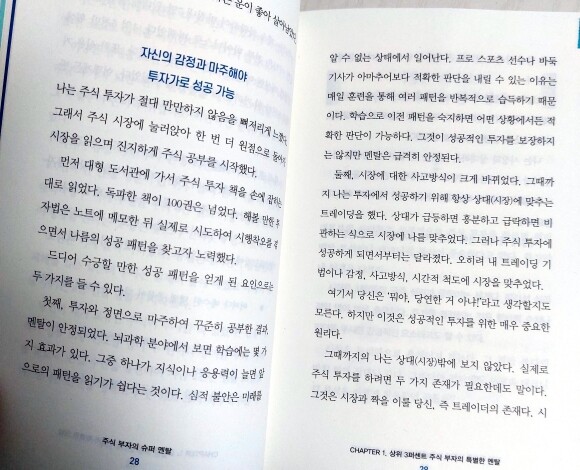 운이 좋아 살아남았
자신의 감정과 마주해야
투자가로 성공 가능
나는 주식 투자가 절대 만만하지 않음을 뼈저리게 느꼈다.
그래서 주식 시장에 눌러앉아 한 번 더 원점으로 돌아
시장을 읽으며 진지하게 주식 공부를 시작했다.
먼저 대형 도서관에 가서 주식 투자 책을 손에 잡히는
대로 읽었다. 독파한 책이 100권은 넘었다. 해볼 만한 투
자법은 노트에 메모한 뒤 실제로 시도하여 시행착오를 겪
으면서 나름의 성공 패턴을 찾고자 노력했다.
드디어 수긍할 만한 성공 패턴을 얻게 된 요인으로는
두 가지를 들 수 있다.
첫째, 투자와 정면으로 마주하여 꾸준히 공부한 결과
멘탈이 안정되었다. 뇌과학 분야에서 보면 학습에는 몇 가
지 효과가 있다. 그중 하나가 지식이나 응용력이 늘면 앞
으로의 패턴을 읽기가 쉽다는 것이다. 심적 불안은 미래를
주식 부자의 슈퍼 멘탈
28
알 수 없는 상태에서 일어난다. 프로 스포츠 선수나 바둑
기사가 아마추어보다 적확한 판단을 내릴 수 있는 이유는
매일 훈련을 통해 여러 패턴을 반복적으로 습득하기 때문
이다. 학습으로 이전 패턴을 숙지하면 어떤 상황에서든 적
확한 판단이 가능하다. 그것이 성공적인 투자를 보장하지
는 않지만 멘탈은 급격히 안정된다.
둘째, 시장에 대한 사고방식이 크게 바뀌었다. 그때까
지 나는 투자에서 성공하기 위해 항상 상대(시장)에 맞추는
트레이딩을 했다. 상대가 급등하면 흥분하고 급락하면 비
관하는 식으로 시장에 나를 맞추었다. 그러나 주식 투자에
성공하게 되면서부터는 달라졌다. 오히려 내 트레이딩 기
법이나 감정, 사고방식, 시간적 척도에 시장을 맞추었다.
여기서 당신은 '뭐야, 당연한 거 아냐!'라고 생각할지도
모른다. 하지만 이것은 성공적인 투자를 위한 매우 중요한
원리다.
그때까지의 나는 상대(시장)밖에 보지 않았다. 실제로
주식 투자를 하려면 두 가지 존재가 필요한데도 말이다.
그것은 시장과 짝을 이룰 당신, 즉 트레이더의 존재다. 시
CHAPTER 1. 상위 3퍼센트 주식 부자의 특별한 멘탈
28